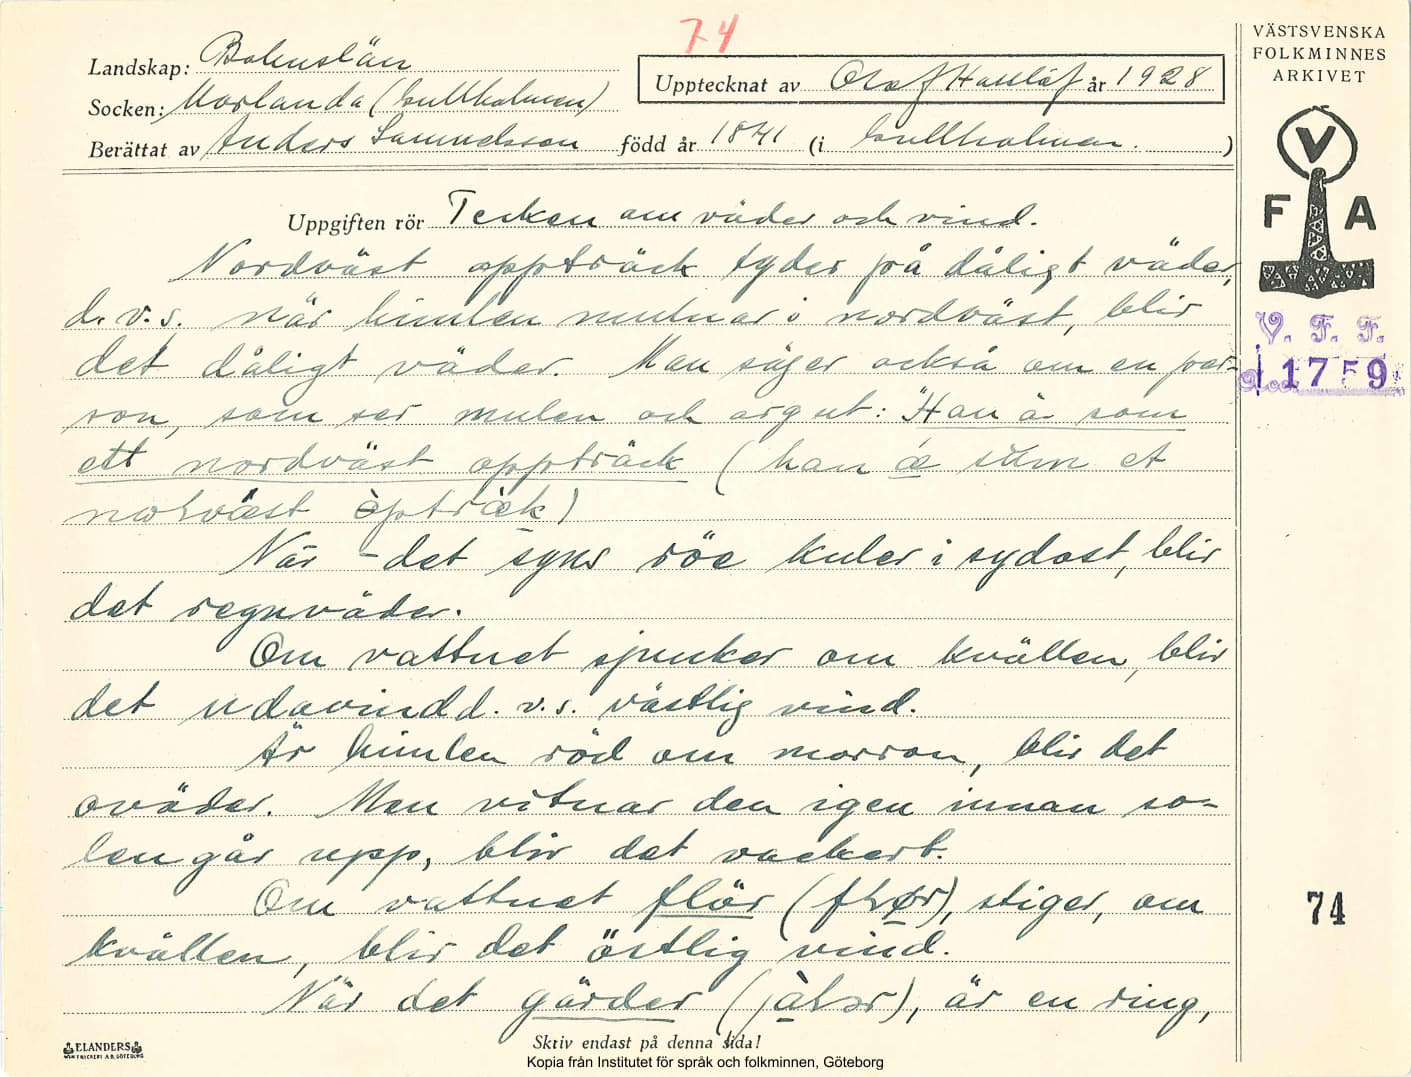 74
Landskap: Bohuslän
Socken: Morlanda (Gullholmen)
Upptecknat av Olof Hasslöf år 1928
Berättat av Anders Samuelsson född år 1841 (i Gullholmen. )
VÄSTSVENSKA
FOLKMINNES
ARKIVET
V
F A
V. F. F.
1759
Uppgiften rör Tecken om väder och vind.
Nordväst oppträck tyder på dåligt väder,
d. v. s. när himlen mulnar i nordväst, blir
det dåligt väder. Man säger också om en per-
son, som ser mulen och arg ut: "Han ä som
ett nordväst oppträck (han æ sum et
noLvæst òpträck)
När det syns röe kuler i sydost, blir
det regnväder.
Om vattnet sjunker om kvällen, blir
det udavind d. v. s. västlig vind.
Är himlen röd om morron, blir det
oväder. Men vitnar den igen innan so-
len går upp, blir det vackert.
Om vattnet flör (fLør), stiger, om
kvällen, blir det östlig vind.
När det gärder (jàLər), är en ring,
74
ELANDERS
Skriv endast på denna sida!
Kopia från Institutet för språk och folkminnen, Göteborg